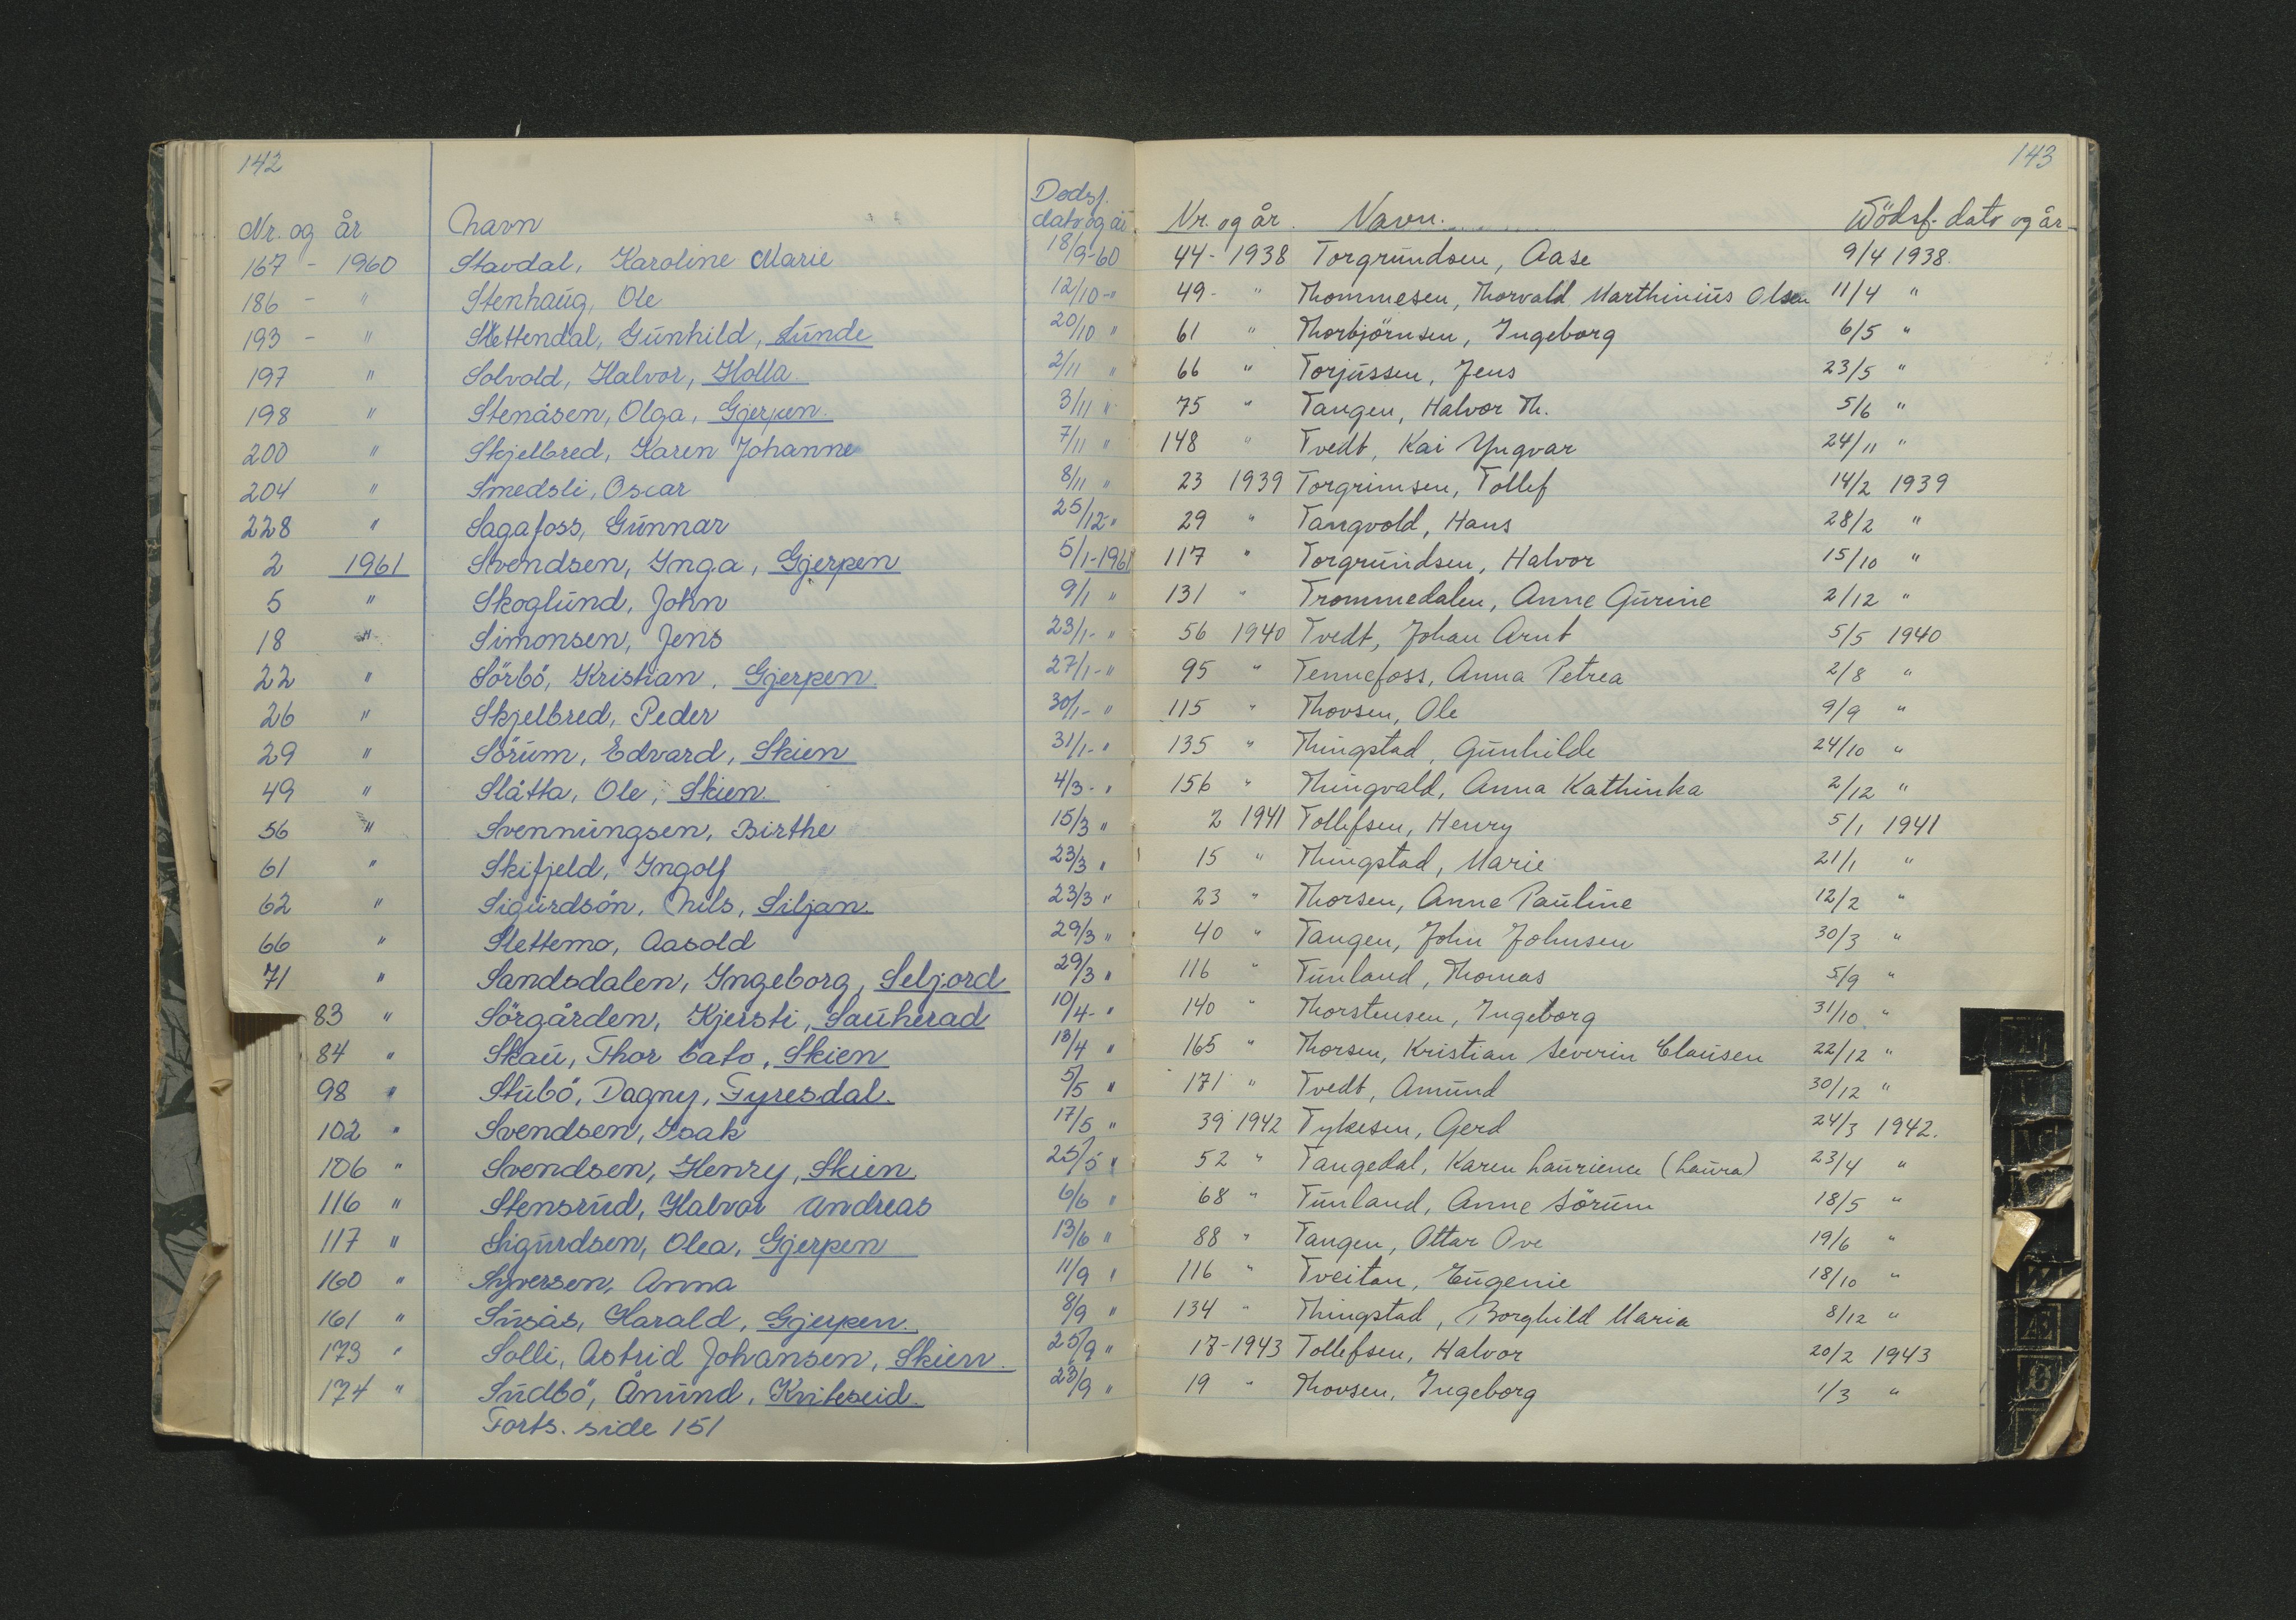 142
Nr. og år Navn Dødsf. dato og år
167 - 1960 Stavdal, Karoline Marie 18/9-60
186 - " Stenhaug, Ole 12/10-"
193 - " Slettendal, Gunhild, Lunde 20/10 "
197 " Solvold, Halvor, Holla. 2/11 "
198 " Stenåsen, Olga, Gjerpen. 3/11 "
200 " Skjelbred, Karen Johanne 7/11 "
204 " Smedsli, Oscar 8/11 "
228 " Sagafoss, Gunnar 25/12 "
2 1961 Svendsen, Inga, Gjerpen 5/1-1961
5 " Skoglund, John 9/1 "
18 " Simonsen, Jens 23/1- "
22 " Sörbö, Kristian, Gjerpen 27/1- "
26 " Skjelbred, Peder 30/1- "
29 " Sörum, Edvard, Skien 31/1- "
49 " Slåtta, Ole, Skien. 4/3- "
56 " Svennungsen, Birthe 15/3 "
61 " Skifjeld, Ingolf 23/3 "
62 " Sigurdsön, Nils, Siljan. 23/3 "
66 " Slettemo, Aasold 29/3 "
71 " Sandsdalen, Ingeborg, Seljord 29/3 "
83 " Sörgården, Kjersti, Sauherad 10/4- "
84 " Skau, Thor Cato, Skien 18/4 "
98 " Stubö, Dagny, Fyresdal. 5/5 "
102 " Svendsen, Isak 17/5 "
106 " Svendsen, Henry, Skien 25/5 "
116 " Stensrud, Halvor Andreas 6/6 "
117 " Sigurdsen, Olea, Gjerpen 13/6 "
160 " Syversen, Anna 11/9 "
161 " Susås, Harald, Gjerpen. 8/9 "
173 " Solli, Astrid Johansen, Skien. 25/9 "
174 " Sudbö, Ånund, Kviteseid. 23/9 "
Forts. side 151
143
Nr. og år. Navn. Dödsf. dato og år
44- 1938 Torgrundsen, Aase 9/4 1938.
49- " Thommesen, Thorvald Marthinius Olsen 11/4 "
61 " Thorbjörnsen, Ingeborg 6/5 "
66 " Torjussen, Jens 23/5 "
75 " Tangen, Halvor Th. 5/6 "
148 " Tvedt, Kai Yngvar 24/11 "
23 1939 Torgrimsen, Tollef 14/2 1939
29 " Tangvold, Hans 28/2 "
117 " Torgrundsen, Halvor 15/10 "
131 " Trommedalen, Anne Gurine 2/12 "
56 1940 Tvedt, Johan Arnt 5/5 1940
95 " Tennefoss, Anna Petrea 2/8 "
115 " Thovsen, Ole 9/9 "
135 " Thingstad, Gunhilde 24/10 "
156 " Thingvald, Anna Kathinka 2/12 "
2 1941 Tollefsen, Henry 5/1 1941
15 " Thingstad, Marie 21/1 "
23 " Thorsen, Anne Pauline 12/2 "
40 " Tangen, John Johnsen 30/3 "
116 " Tunland, Thomas 5/9 "
140 " Thorstensen, Ingeborg 31/10 "
165 " Thorsen, Kristian Severin Clausen 22/12 "
171 " Tvedt, Amund 30/12 "
39 1942 Tykesen, Gerd 24/3 1942.
52 " Tangedal, Karen Laurience (Laura) 23/4 "
68 " Tunland, Anne Sörum 18/5 "
88 " Tangen, Ottar Ove 19/6 "
116 " Tveitan, Eugenie 18/10 "
134 " Thingstad, Borghild Maria 8/12 "
18-1943 Tollefsen, Halvor 20/2 1943
19 " Thovsen, Ingeborg 1/3 "
Æ
Ø